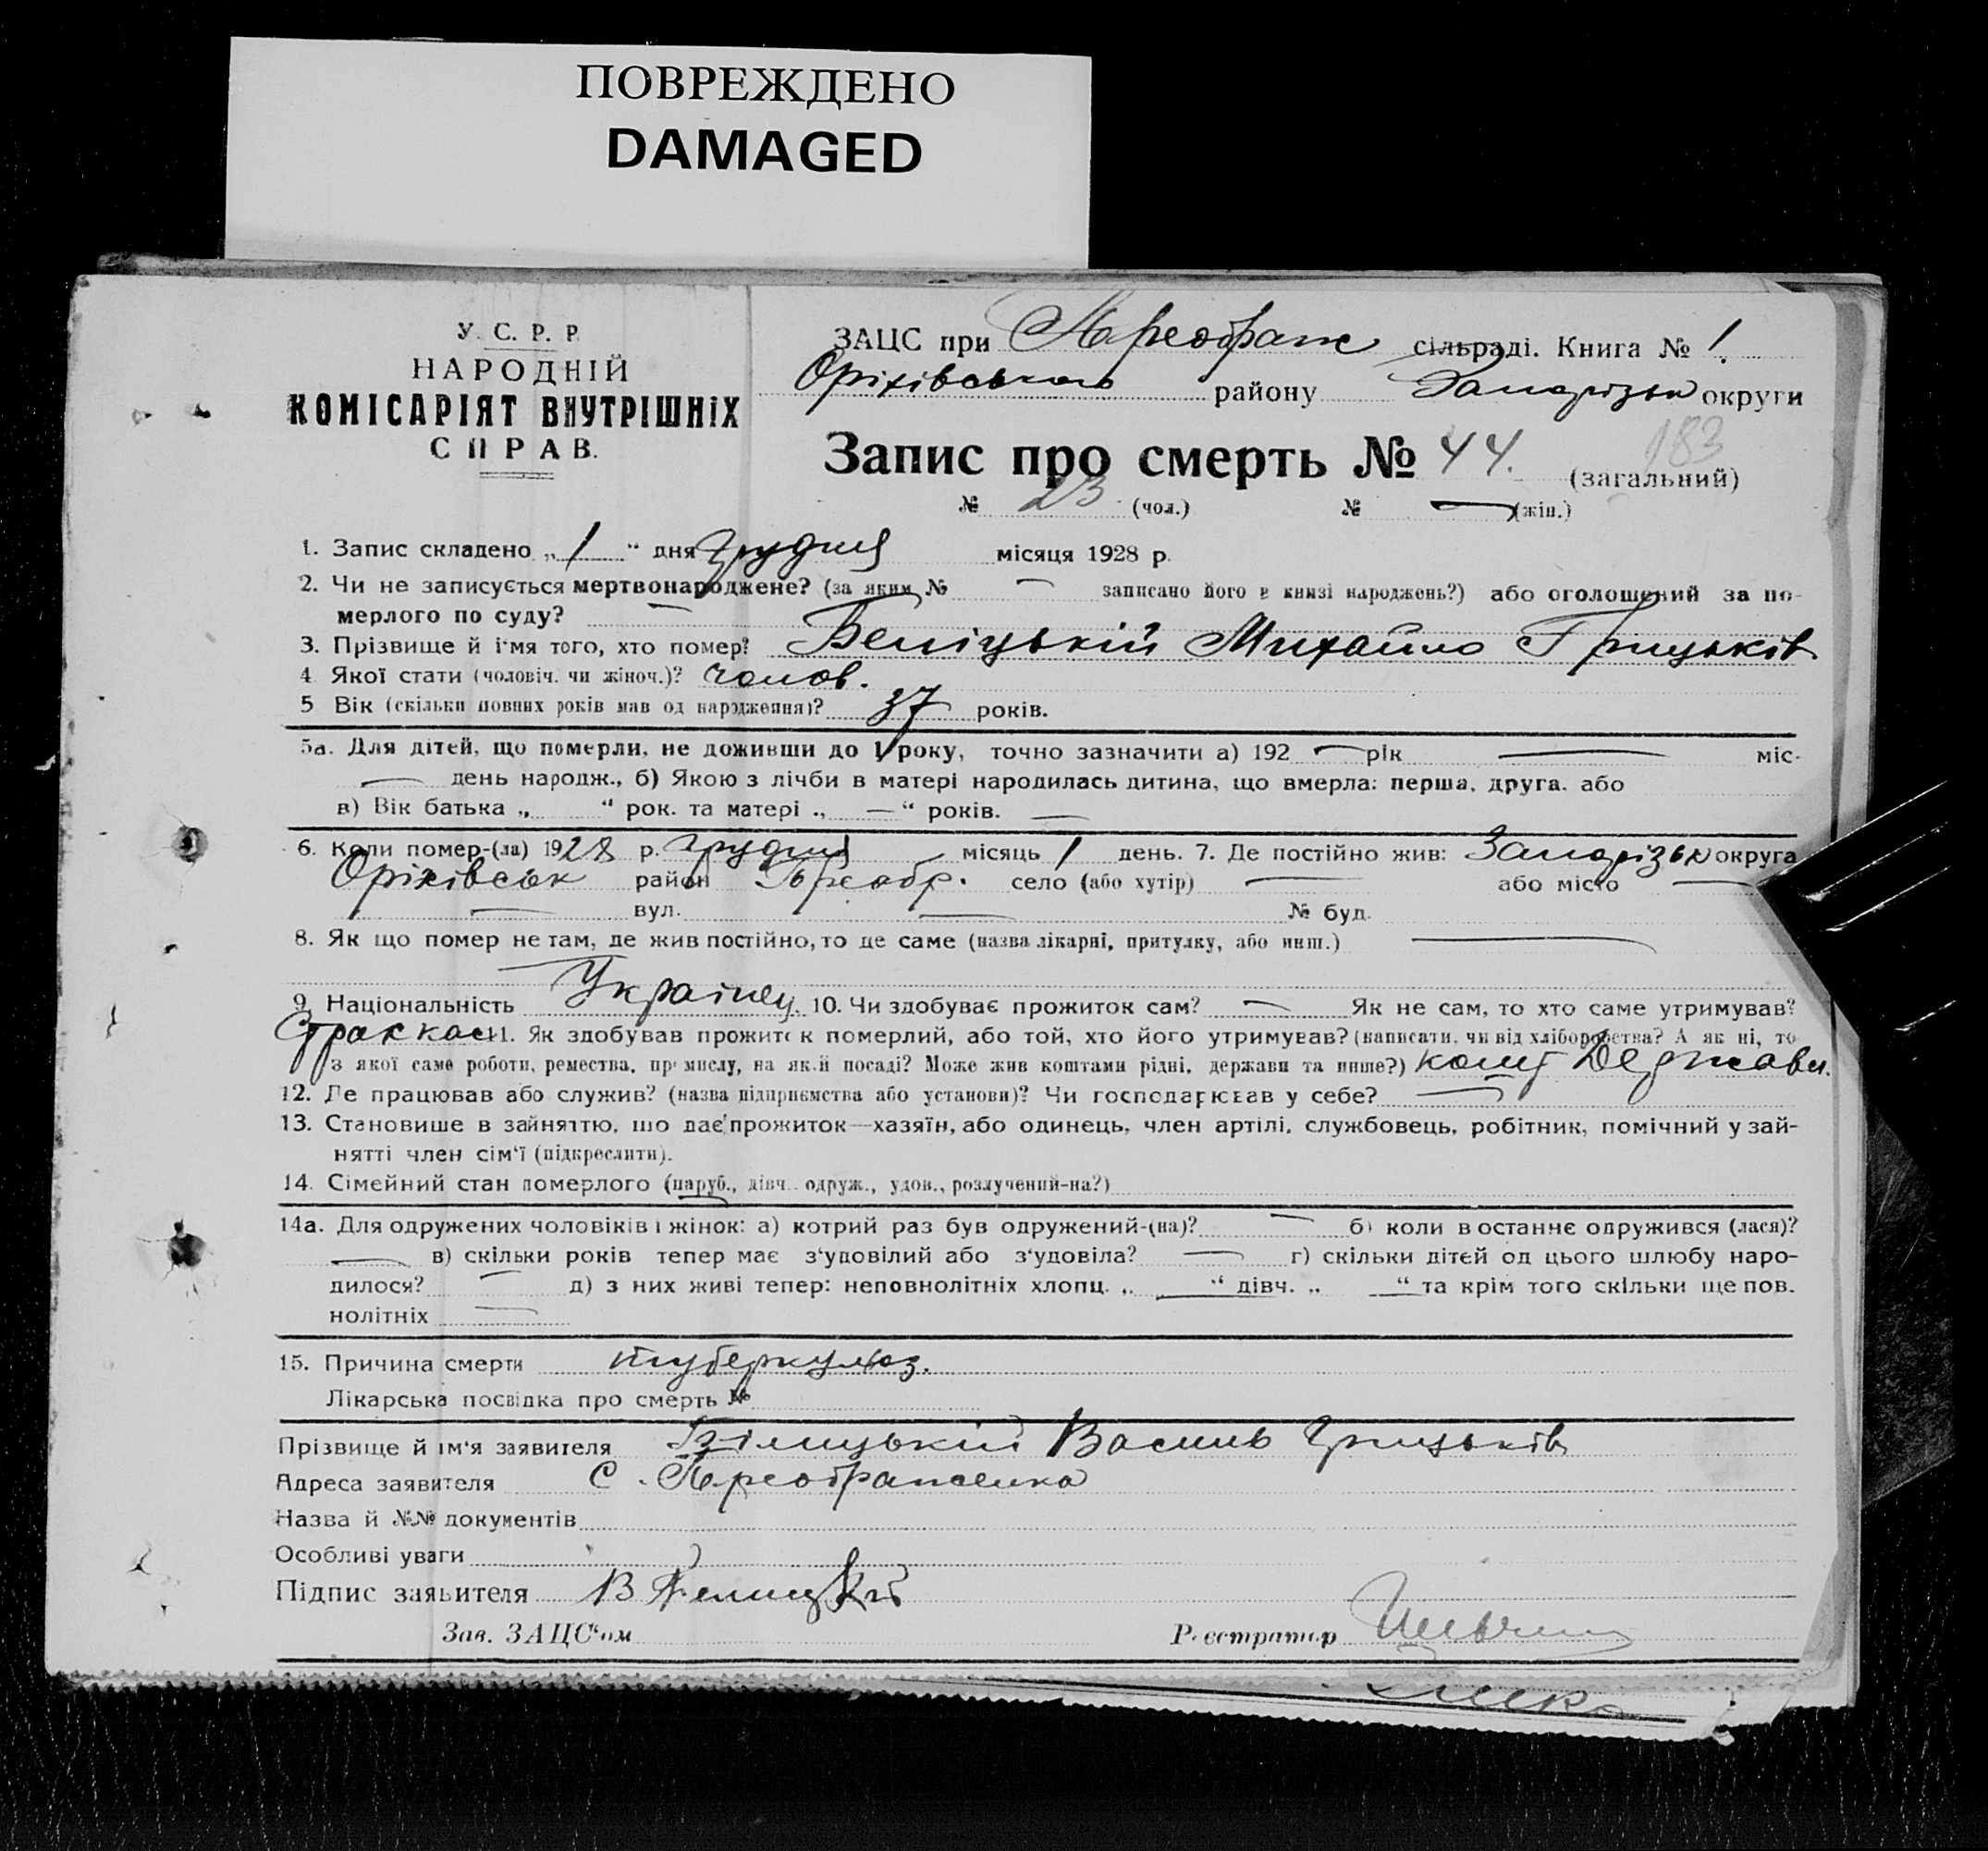 ПОВРЕЖДЕНО
DAMAGED
У. С. Р. Р.
НАРОДНІЙ
КОМІСАРІЯТ ВНУТРІШНІХ
СПРАВ.
ЗАЦС при Преображ сільраді. Книга № 1.
Оріхівського району Запорізьк округи
183
Запис про смерть № 44. (загальний)
№ 23 (чол.) № — (жін.)
1. Запис складено „ 1 “ дня грудня місяця 1928 р.
2. Чи не записується мертвонароджене? (за яким № — записано його в книзі народжень?) або оголошений за по-
мерлого по суду? —
3. Прізвище й ім'я того, хто помер? Беліцькій Михайло Грицьків
4 Якої стати (чоловіч. чи жіноч.)? чолов.
5 Вік (скільки повних років мав од народження)? 37 років.
5а. Для дітей, що померли, не доживши до 1 року, точно зазначити а) 192 — рік — міс-
— день народж., б) Якою з лічби в матері народилась дитина, що вмерла: перша, друга. або
в) Вік батька „ “ рок. та матері „ — “ років. —
6. Коли помер-(ла) 1928 р. грудня місяць 1 день. 7. Де постійно жив: Запорізьк округа
Оріхівськ район Преобр. село (або хутір) — або місто —
— вул. — № буд.
8. Як що помер не там, де жив постійно, то де саме (назва лікарні, притулку, або инш.) —
9. Національність Українец. 10. Чи здобуває прожиток сам? — Як не сам, то хто саме утримував?
Страхкас 11. Як здобував прожиток померлий, або той, хто його утримував? (написати, чи від хліборобства? А як ні, то
з якої саме роботи, ремества, промислу, на якій посаді? Може жив коштами рідні, держави та инше?) кошт Держави.
12. Де працював або служив? (назва підприємства або установи)? Чи господарював у себе? —
13. Становище в зайняттю, що дає прожиток—хазяїн, або одинець, член артілі, службовець, робітник, помічний у зай-
нятті член сім'ї (підкреслити).
14. Сімейний стан померлого (паруб., дівч. одруж., удов., розлучений-на?)
14а. Для одружених чоловіків і жінок: а) котрий раз був одружений-(на)? — б) коли в останнє одружився (лася)?
— в) скільки років тепер має з'удовілий або з'удовіла? — г) скільки дітей од цього шлюбу наро-
дилося? — д) з них живі тепер: неповнолітніх хлопц. „ — “ дівч. „ — “ та крім того скільки ще пов.
нолітніх —
15. Причина смерти туберкульоз.
Лікарська посвідка про смерть №
Прізвище й ім'я заявителя Біліцькій Василь Грицьків
Адреса заявителя с. Преображенка
Назва й №№ документів
Особливі уваги
Підпис заявителя В Белицкий
Зав. ЗАЦС'ом Реєстратор